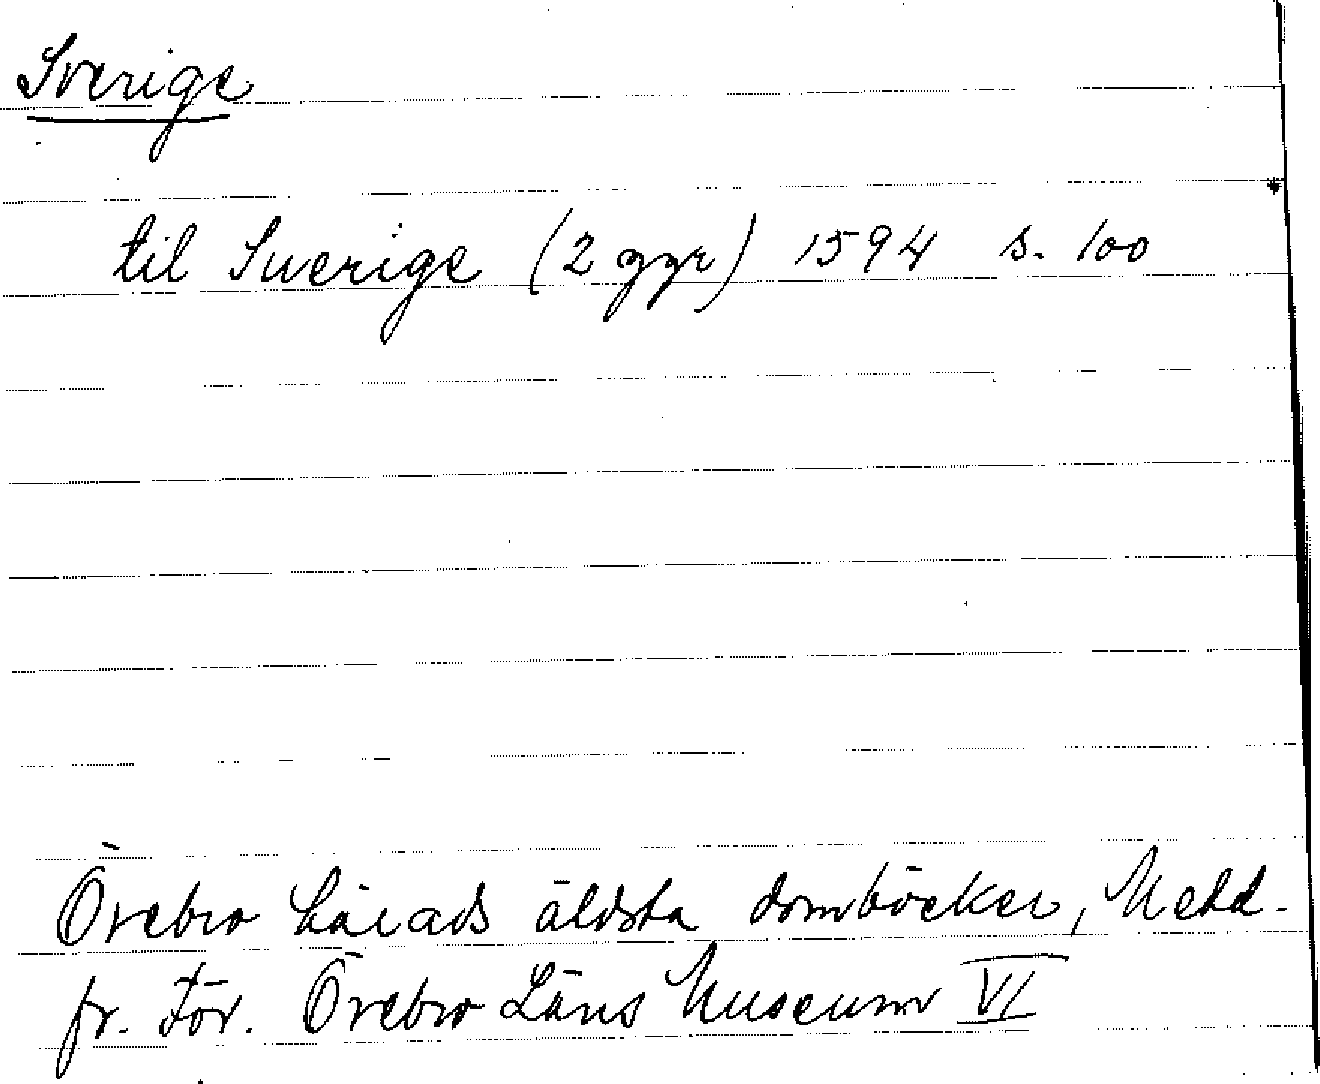 Sverige
til Swerige (2 ggr) 1594 s. 100
Örebro härads äldsta domböcker, Medd.
fr. För. Örebro Läns Museum VI